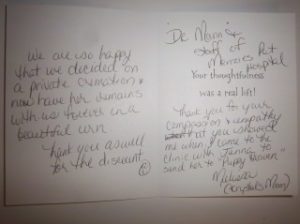 We are so happy
that we decided on
a private cremation &
now have her remains
with us forever in a
beautiful urn
Thank you as well
for the discount
Dr Mann &
staff of Pet
Memories Hospital
Your thoughtfulness
was a real lift!
Thank you for your
compassion & empathy
that you showed
me when I came to the
clinic with Janna to
send her to "Puppy Heaven"
Melissa
(Mom)